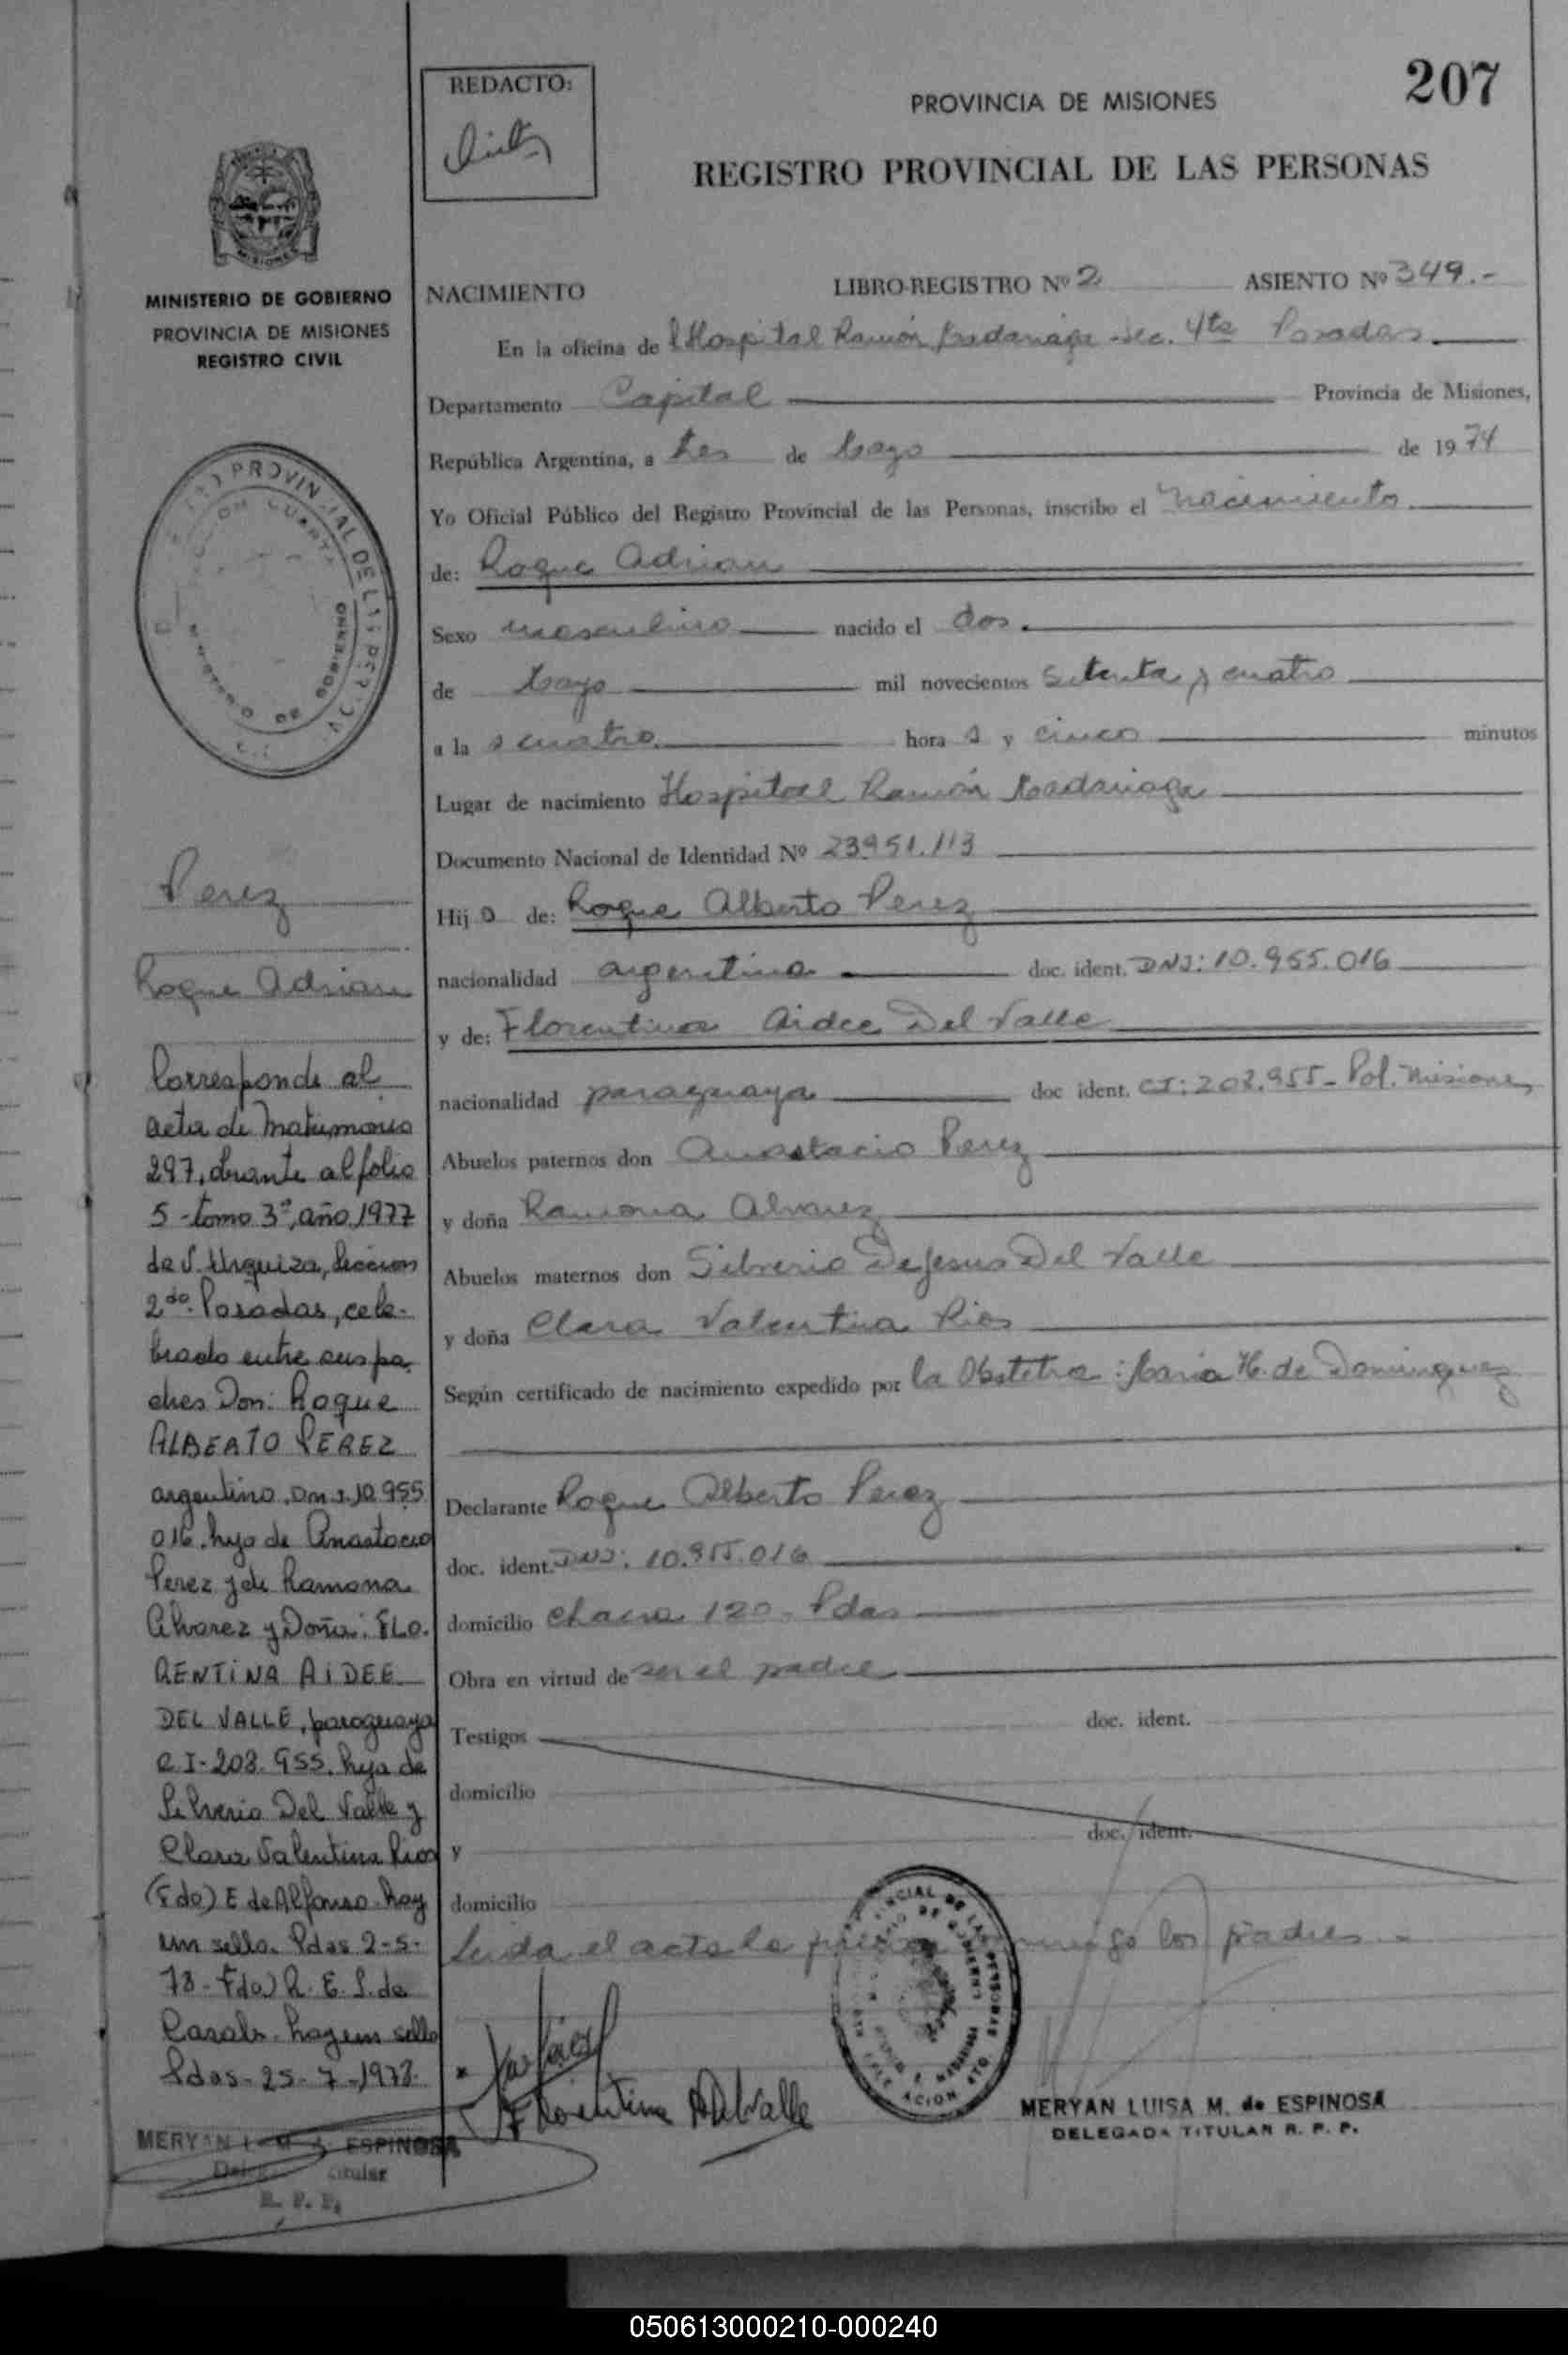 207
REDACTO:
PROVINCIA DE MISIONES
REGISTRO PROVINCIAL DE LAS PERSONAS
MINISTERIO DE GOBIERNO
PROVINCIA DE MISIONES
REGISTRO CIVIL
NACIMIENTO LIBRO-REGISTRO Nº 2 ASIENTO Nº 349.-
En la oficina de Hospital Ramón Madariaga Sec. 4ta Posadas.
Departamento Capital Provincia de Misiones,
República Argentina, a tres de Mayo de 1974
Yo Oficial Público del Registro Provincial de las Personas, inscribo el nacimiento
de: Roque Adrian
Sexo masculino nacido el dos.
de Mayo mil novecientos setenta y cuatro
a la s cuatro hora s y cinco minutos
Lugar de nacimiento Hospital Ramón Madariaga
Documento Nacional de Identidad Nº 23951.113
Hij o de: Roque Alberto Perez
nacionalidad argentina doc. ident. DNI: 10.955.016
y de: Florentina Aidee Del Valle
nacionalidad paraguaya doc ident. CI: 202.955- Pol. Misiones
Abuelos paternos don Anastacio Perez
y doña Ramona Alvarez
Abuelos maternos don Silverio DeJesus Del Valle
y doña Clara Valentina Rios
Según certificado de nacimiento expedido por la Obstetra: Maria H. de Dominguez
Declarante Roque Alberto Perez
doc. ident. DNI: 10.955.016
domicilio Chacra 120- Pdas
Obra en virtud de ser el padre
Testigos doc. ident.
domicilio
y doc. ident.
domicilio
Leida el acta la firman los padres
Florentina A Delvalle
MERYAN LUISA M. de ESPINOSA
DELEGADA TITULAR R. P. P.
Perez
Roque Adrian
Corresponde al
acta de Matrimonio
297, obrante al folio
5 - tomo 3º, año 1977
de J. Urquiza, Sección
2da. Posadas, cele-
brado entre sus pa
dres Don: Roque
ALBERTO PEREZ
argentino. DNI. 10.955
016. hijo de Anastacio
Perez y de Ramona
Alvarez y Doña: FLO-
RENTINA AIDEE
DEL VALLE, paraguaya
C I- 203. 955. hija de
Silverio Del Valle y
Clara Valentina Rios
(Fdo) E de Alfonso- hay
un sello. Pdas 2-5-
78- Fdo) R. E. S. de
Casals- hay un sello
Pdas- 25- 7-1978.
MERYAN ESPINOSA
Titular
R. P. P.
050613000210-000240